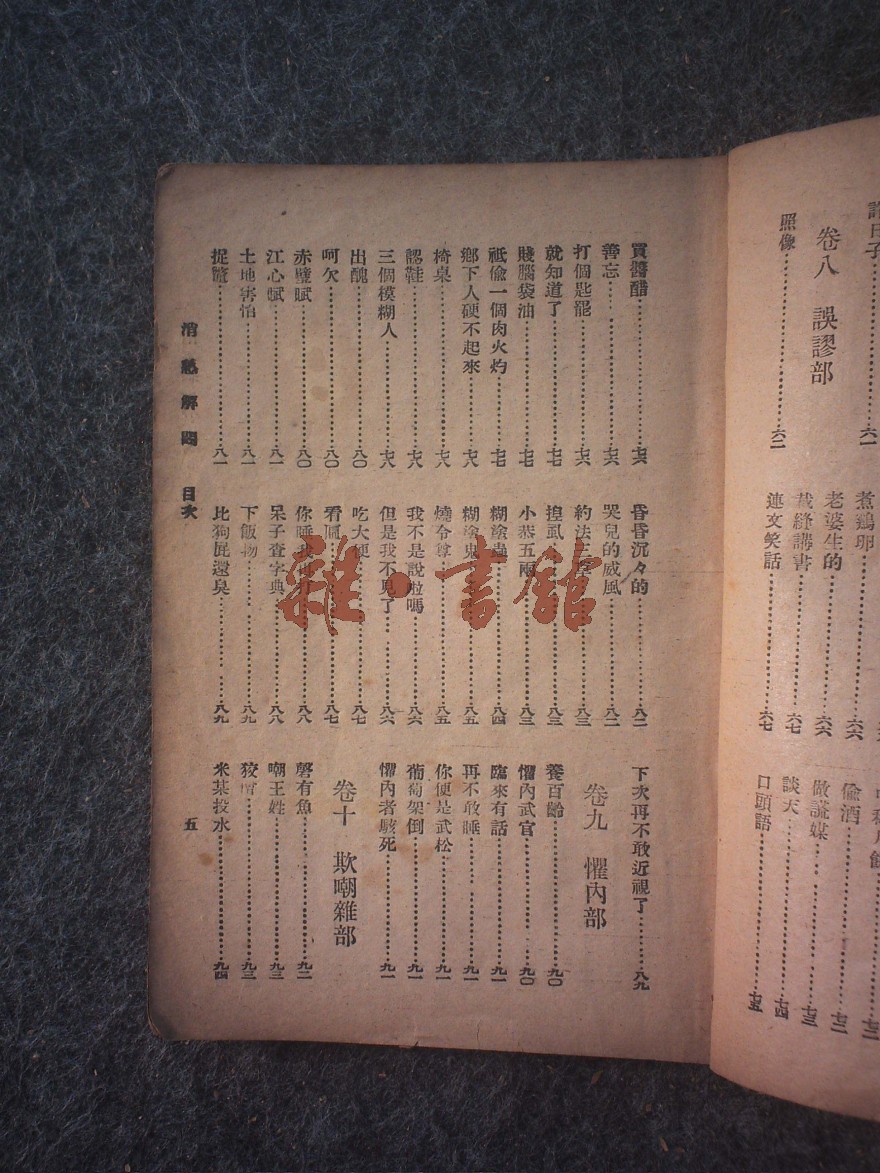 卷八 誤謬部
照像⋯⋯六二
煮鷄卵⋯⋯六六
老婆生的⋯⋯六六
裁縫講書⋯⋯六七
連文笑話⋯⋯六七
偷酒⋯⋯七二
做謊媒⋯⋯七三
談天⋯⋯七四
口頭語⋯⋯七五
買醬醋⋯⋯七六
善忘⋯⋯七六
打個匙罷⋯⋯七六
就知道了⋯⋯七七
賤腦袋油⋯⋯七七
祗偷一個肉火灼⋯⋯七七
鄉下人硬不起來⋯⋯七八
椅桌⋯⋯七八
認鞋⋯⋯七八
三個模糊人⋯⋯七八
出醜⋯⋯八〇
呵欠⋯⋯八〇
赤壁賦⋯⋯八〇
江心賦⋯⋯八一
土地害怕⋯⋯八一
捉鱉⋯⋯八一
昏昏沉々的⋯⋯八二
哭兒的威風⋯⋯八二
約法⋯⋯八三
小恭五兩⋯⋯八三
糊塗蟲⋯⋯八四
糊塗鬼⋯⋯八五
燒令尊⋯⋯八五
我不是說啦嗎⋯⋯八六
但是我不見了⋯⋯八六
吃大便⋯⋯八七
看⋯⋯八七
你睡我⋯⋯八八
呆子查字典⋯⋯八八
下飯物⋯⋯八九
比狗屁還臭⋯⋯八九
下次再不敢近視了⋯⋯八九
卷九 懼內部
養百齡⋯⋯九〇
懼內武官⋯⋯九〇
臨來有話⋯⋯九一
再不敢睡⋯⋯九一
你便是武松⋯⋯九一
葡萄架倒⋯⋯九一
懼內者駭死⋯⋯九一
卷十 欺嘲雜部
磬有魚⋯⋯九二
嘲王姓⋯⋯九三
狡⋯⋯九三
米某投水⋯⋯九四
消愁解悶 目次 五
雜·書館